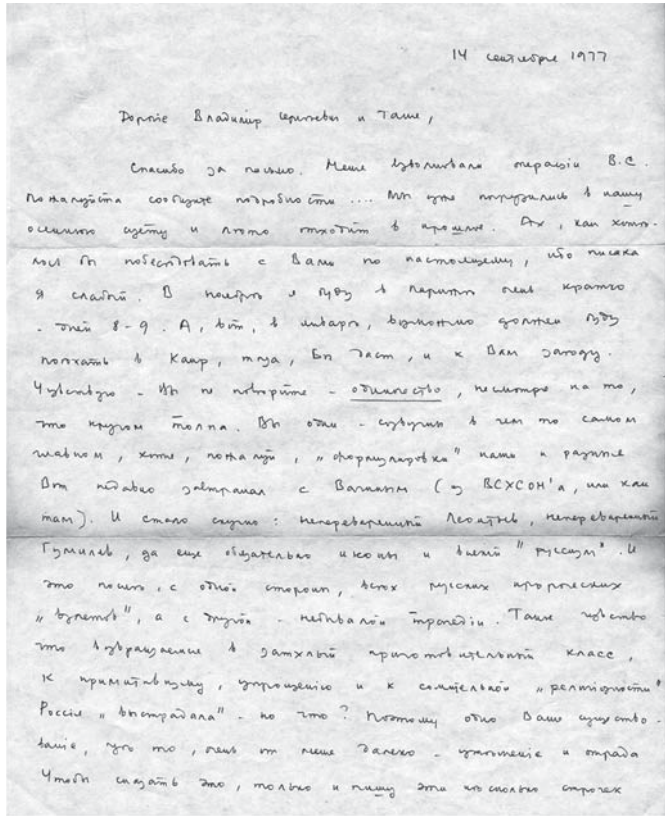 14 сентября 1977
Дорогие Владимир Сергеевич и Таня,
Спасибо за письмо. Меня взволновала операція В.С.
Пожалуйста сообщите подробности .... Мы уже погрузились в нашу
осеннюю суету и лѣто отходит в прошлое. Ах, как хотѣ-
лось бы побесѣдовать с Вами по настоящему, ибо писака
я слабый. В ноябрѣ я буду в Парижѣ очень кратко
- дней 8-9. А, вот, в январѣ, возможно должен буду
поѣхать в Каир, тогда, Бог даст, и к Вам заѣду.
Чувствую - Вы не повѣрите - одиночество, несмотря на то,
что кругом толпа. Вы одни - созвучны в чем то самом
главном, хотя, пожалуй, „формулировки" наши и разные
Вот недавно завтракал с (из ВСХСОН'а, или как
там). И стало скучно: непереваренный Леонтьев, непереваренный
Гумилев, да еще обязательно иконы и всякій "руссизм". И
это послѣ, с одной стороны, всѣх русских пророческих
„взлетов", а с другой - небывалой трагедіи. Такое чувство
что возвращаешься в затхлый приготовительный класс,
к примитивизму, упрощенію и к сомнительной „религіозности"
Россія „выстрадала" - но что? Поэтому одно Ваше существо-
ваніе, что то, очень от меня далеко - утѣшеніе и отрада
Чтобы сказать это, только и пишу эти нѣсколько строчек